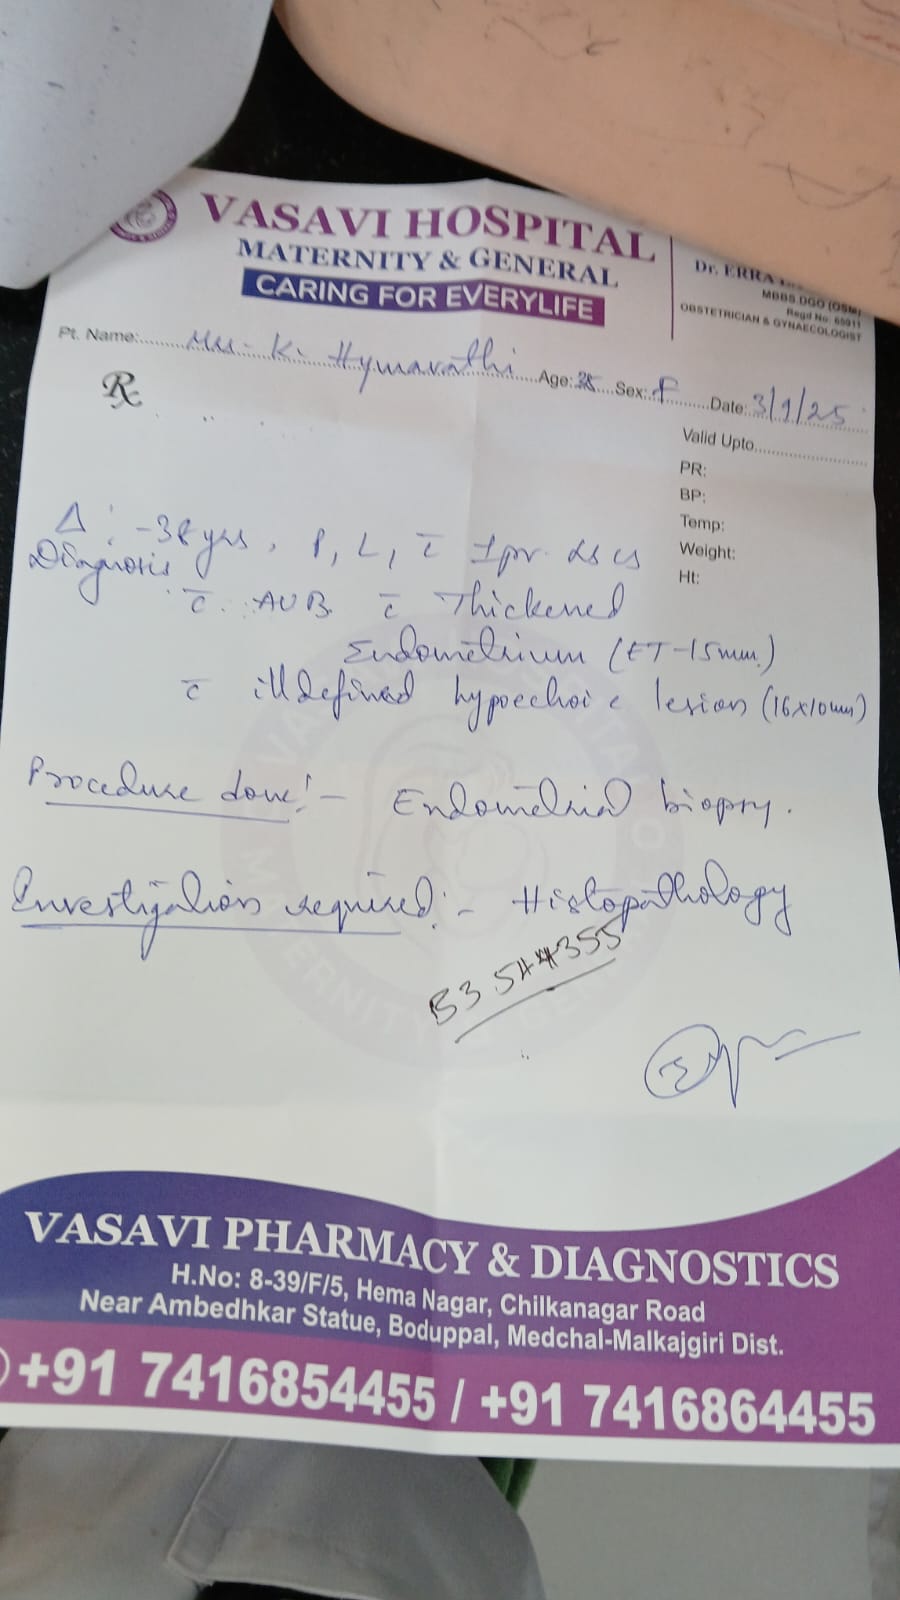 VASAVI HOSPITAL
MATERNITY & GENERAL
CARING FOR EVERYLIFE
Dr. ERRA
MBBS.DGO (OSM)
Regd No: 65911
OBSTETRICIAN & GYNAECOLOGIST
Pt. Name: Mrs. K. Hymavathi Age: Sex: F Date: 3/9/25
Rx
Valid Upto
PR:
BP:
Temp:
Weight:
Ht:
Δ : - 38 yrs, P1 L1 c̄ 1 pr. LSCS
Diagnosis
c̄ AUB c̄ Thickened
Endometrium (ET-15mm)
c̄ illdefined hypoechoic lesion (16x10mm)
Procedure done:- Endometrial biopsy.
Investigation required:- Histopathology
VASAVI PHARMACY & DIAGNOSTICS
H.No: 8-39/F/5, Hema Nagar, Chilkanagar Road
Near Ambedhkar Statue, Boduppal, Medchal-Malkajgiri Dist.
+91 7416854455 / +91 7416864455